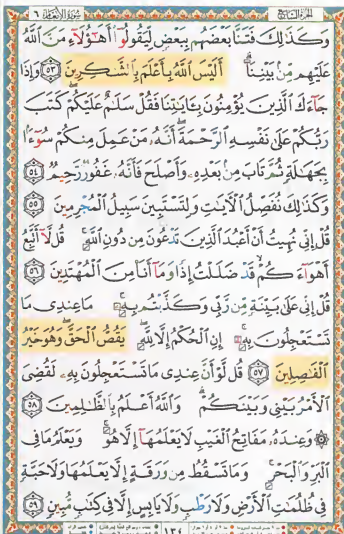 الجزء السابع
سورة الأنعام ٦
وَكَذَٰلِكَ فَتَنَّا بَعْضَهُم بِبَعْضٍ لِّيَقُولُوٓا۟ أَهَٰٓؤُلَآءِ مَنَّ ٱللَّهُ
عَلَيْهِم مِّنۢ بَيْنِنَآ ۗ أَلَيْسَ ٱللَّهُ بِأَعْلَمَ بِٱلشَّٰكِرِينَ ٥٣ وَإِذَا
جَآءَكَ ٱلَّذِينَ يُؤْمِنُونَ بِـَٔايَٰتِنَا فَقُلْ سَلَٰمٌ عَلَيْكُمْ ۖ كَتَبَ
رَبُّكُمْ عَلَىٰ نَفْسِهِ ٱلرَّحْمَةَ ۖ أَنَّهُۥ مَنْ عَمِلَ مِنكُمْ سُوٓءًۢا
بِجَهَٰلَةٍ ثُمَّ تَابَ مِنۢ بَعْدِهِۦ وَأَصْلَحَ فَأَنَّهُۥ غَفُورٌ رَّحِيمٌ ٥٤
وَكَذَٰلِكَ نُفَصِّلُ ٱلْـَٔايَٰتِ وَلِتَسْتَبِينَ سَبِيلُ ٱلْمُجْرِمِينَ ٥٥
قُلْ إِنِّى نُهِيتُ أَنْ أَعْبُدَ ٱلَّذِينَ تَدْعُونَ مِن دُونِ ٱللَّهِ ۚ قُل لَّآ أَتَّبِعُ
أَهْوَآءَكُمْ ۙ قَدْ ضَلَلْتُ إِذًا وَمَآ أَنَا۠ مِنَ ٱلْمُهْتَدِينَ ٥٦
قُلْ إِنِّى عَلَىٰ بَيِّنَةٍ مِّن رَّبِّى وَكَذَّبْتُم بِهِۦ ۚ مَا عِندِى مَا
تَسْتَعْجِلُونَ بِهِۦٓ ۚ إِنِ ٱلْحُكْمُ إِلَّا لِلَّهِ ۖ يَقُصُّ ٱلْحَقَّ ۖ وَهُوَ خَيْرُ
ٱلْفَٰصِلِينَ ٥٧ قُل لَّوْ أَنَّ عِندِى مَا تَسْتَعْجِلُونَ بِهِۦ لَقُضِىَ
ٱلْأَمْرُ بَيْنِى وَبَيْنَكُمْ ۗ وَٱللَّهُ أَعْلَمُ بِٱلظَّٰلِمِينَ ٥٨
۞ وَعِندَهُۥ مَفَاتِحُ ٱلْغَيْبِ لَا يَعْلَمُهَآ إِلَّا هُوَ ۚ وَيَعْلَمُ مَا فِى
ٱلْبَرِّ وَٱلْبَحْرِ ۚ وَمَا تَسْقُطُ مِن وَرَقَةٍ إِلَّا يَعْلَمُهَا وَلَا حَبَّةٍ
فِى ظُلُمَٰتِ ٱلْأَرْضِ وَلَا رَطْبٍ وَلَا يَابِسٍ إِلَّا فِى كِتَٰبٍ مُّبِينٍ ٥٩
١٣٤